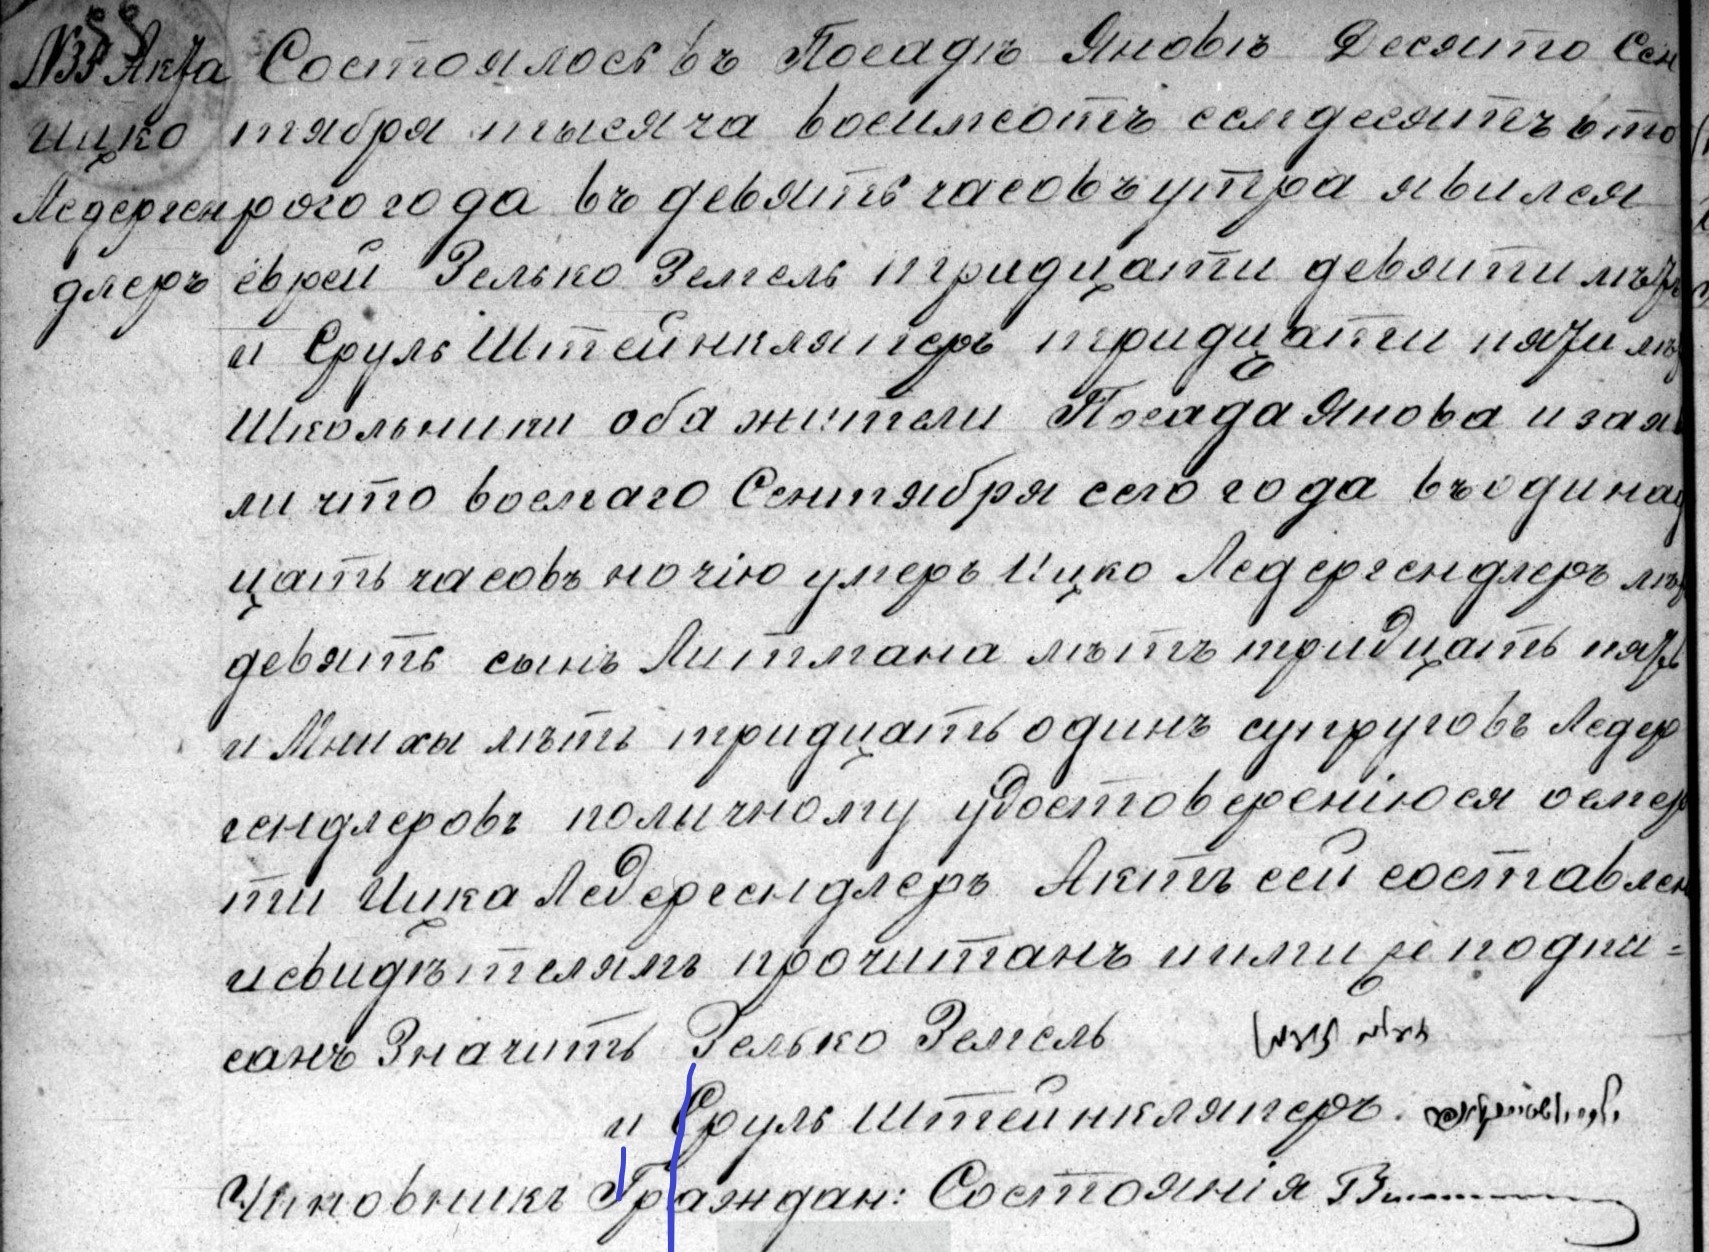 №35 Акта Состоялось въ Посадѣ Яновѣ Десято Сен
Ицко тября тысяча восимсотъ семдесятъ вто
Ледерген рого года въ девять часовъ утра явился
длеръ еврей Зелько Земель тридцати девяти лѣтъ
и Сруль Штейнкляперъ тридцати пяти лѣ
Школьники оба жители Посада Янова и заяв
ли что восмаго Сентября сего года въ одинад
цать часовъ ночію умеръ Ицко Ледергендлеръ лѣ
девять сынъ Литмана лѣтъ тридцать пять
и Мнихи лѣтъ тридцать одинъ супруговъ Ледер
гендлеровъ поличному удостоверенію ся осмер
ти Ицка Ледергендлеръ Актъ сей составлен
и свидѣтелямъ прочитанъ и ими подпи=
санъ Значить Зелько Земель
и Сруль Штейнкляперъ.
Чиновникъ Граждан: Состоянія